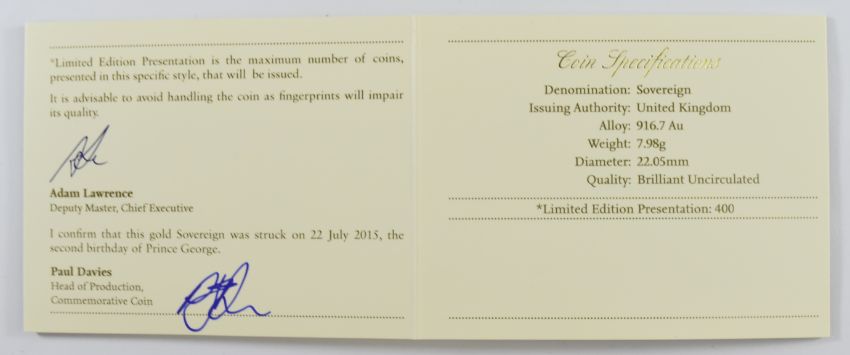 *Limited Edition Presentation is the maximum number of coins,
presented in this specific style, that will be issued.
It is advisable to avoid handling the coin as fingerprints will impair
its quality.
Adam Lawrence
Deputy Master, Chief Executive
I confirm that this gold Sovereign was struck on 22 July 2015, the
second birthday of Prince George.
Paul Davies
Head of Production,
Commemorative Coin
Coin Specifications
Denomination: Sovereign
Issuing Authority: United Kingdom
Alloy: 916.7 Au
Weight: 7.98g
Diameter: 22.05mm
Quality: Brilliant Uncirculated
*Limited Edition Presentation: 400